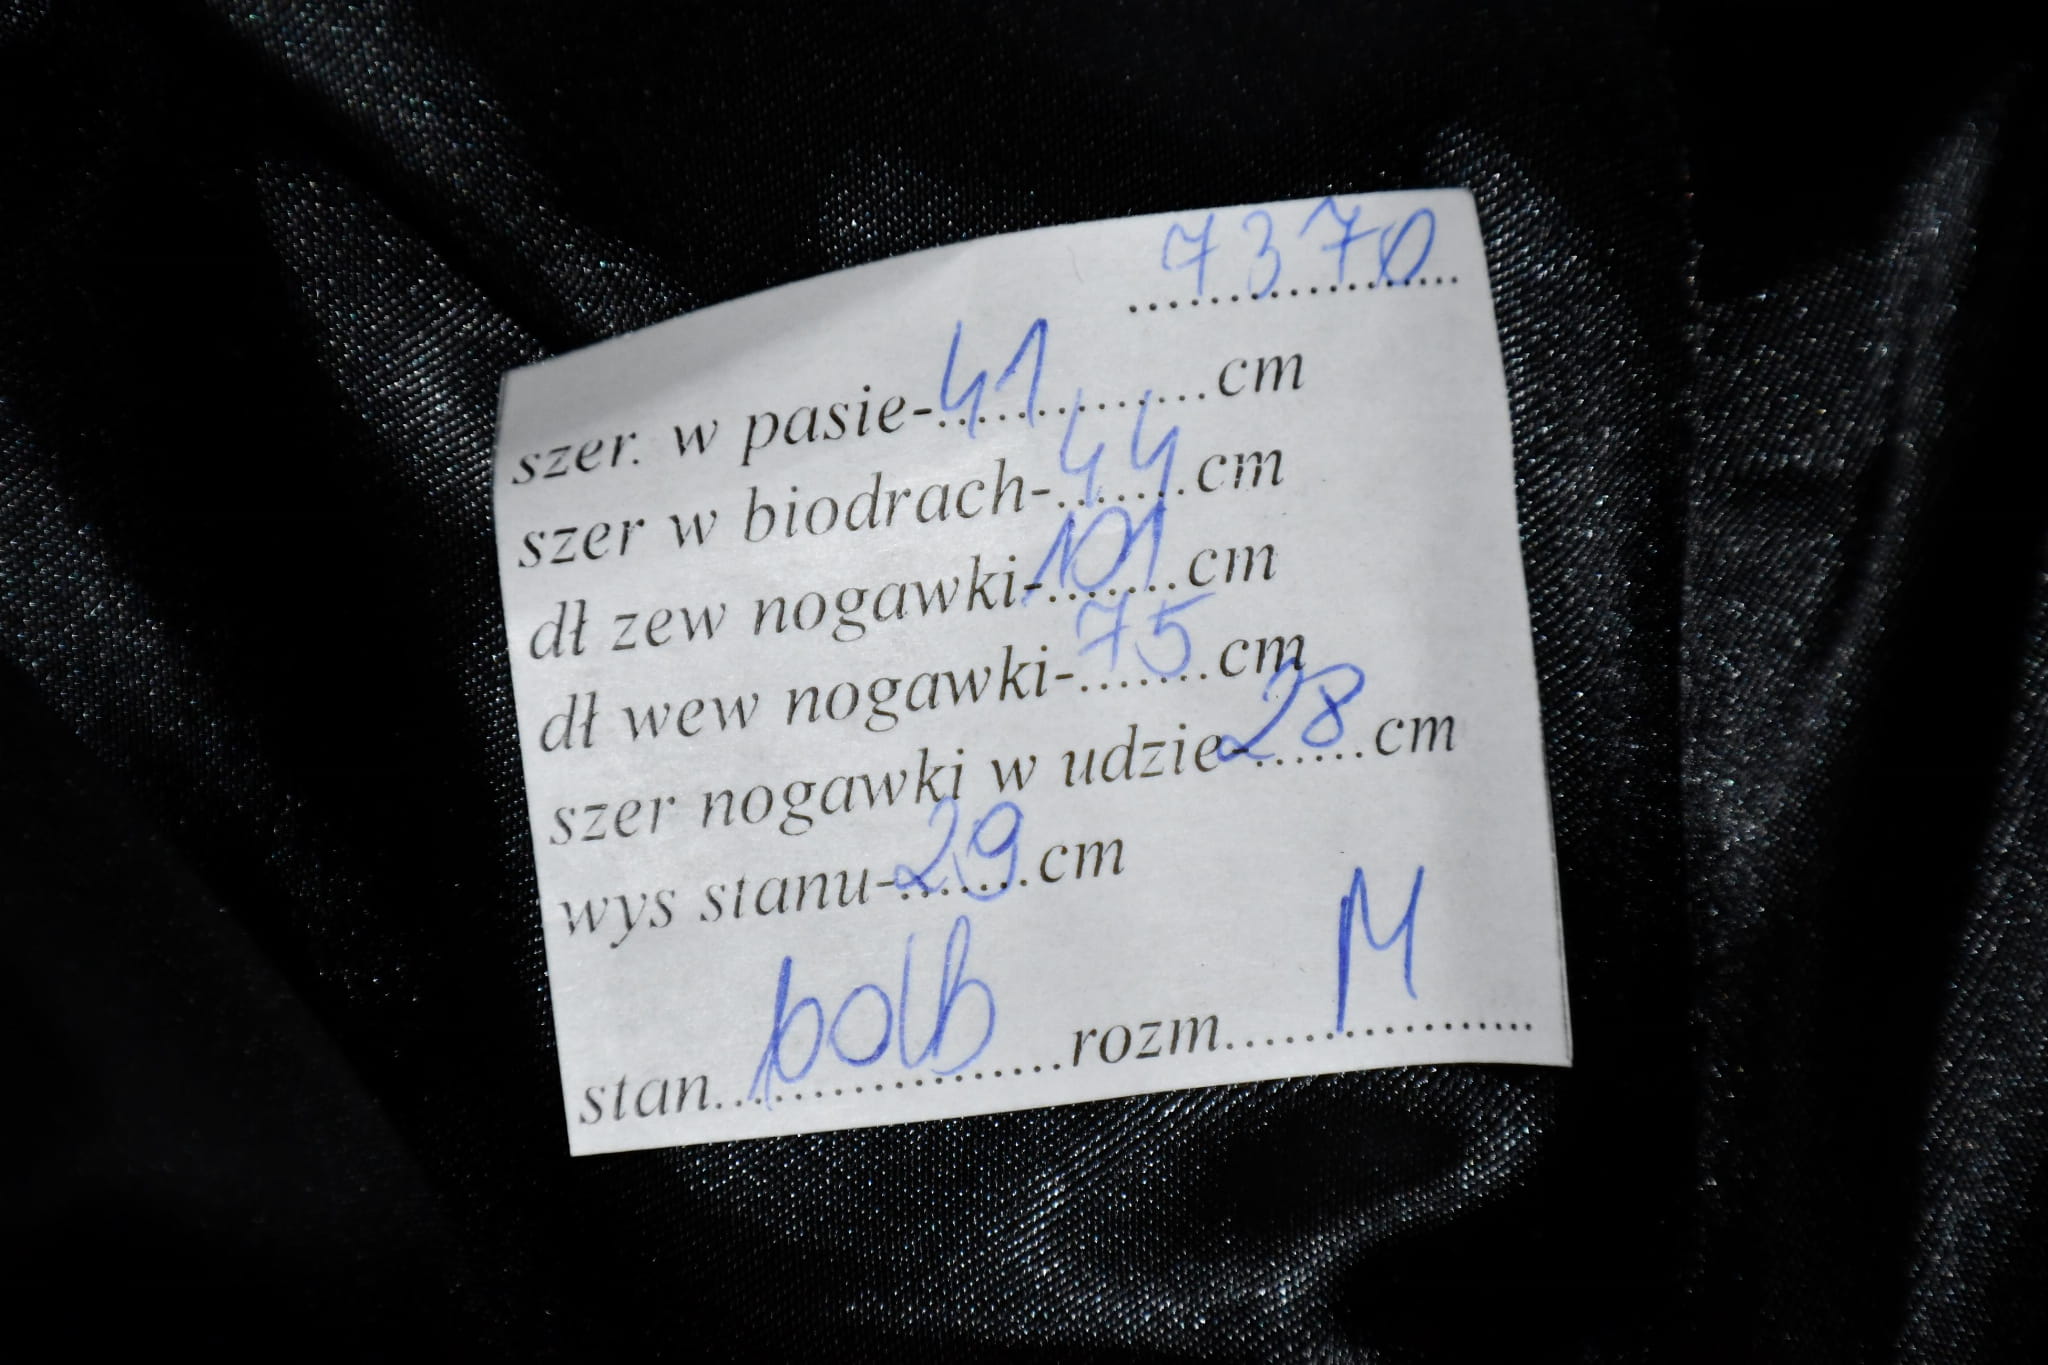 7370
szer. w pasie-41............cm
szer w biodrach-44.......cm
dł zew nogawki-101.......cm
dł wew nogawki-75.......cm
szer nogawki w udzie-28......cm
wys stanu-29.......cm
stan..................rozm...M...............